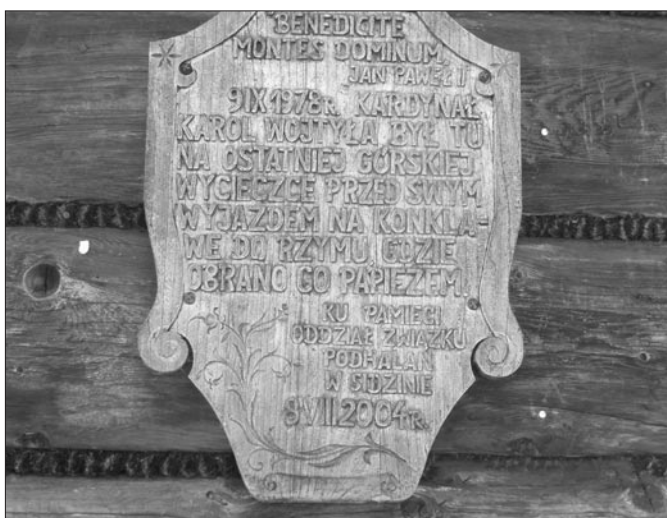 BENEDICITE
MONTES DOMINUM
JAN PAWEŁ I
9 IX 1978 R. KARDYNAŁ
KAROL WOJTYŁA BYŁ TU
NA OSTATNIEJ GÓRSKIEJ
WYCIECZCE PRZED SWYM
WYJAZDEM NA KONKLA-
WE DO RZYMU GDZIE
OBRANO GO PAPIEŻEM.
KU PAMIĘCI
ODDZIAŁ ZWIĄZKU
PODHALAN
W SIDZINIE
8 VII.2004 R.